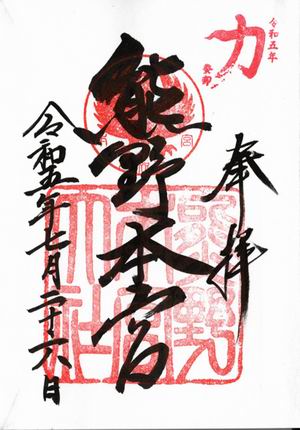 力
令和五年
癸卯
奉拝
熊野本宮
熊野
本宮
大社
令和五年七月二十六日